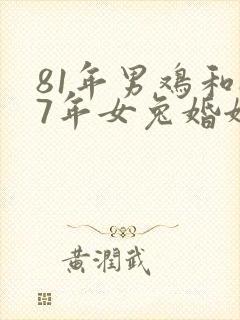 81年男鸡和
7年女兔婚
黄潤武